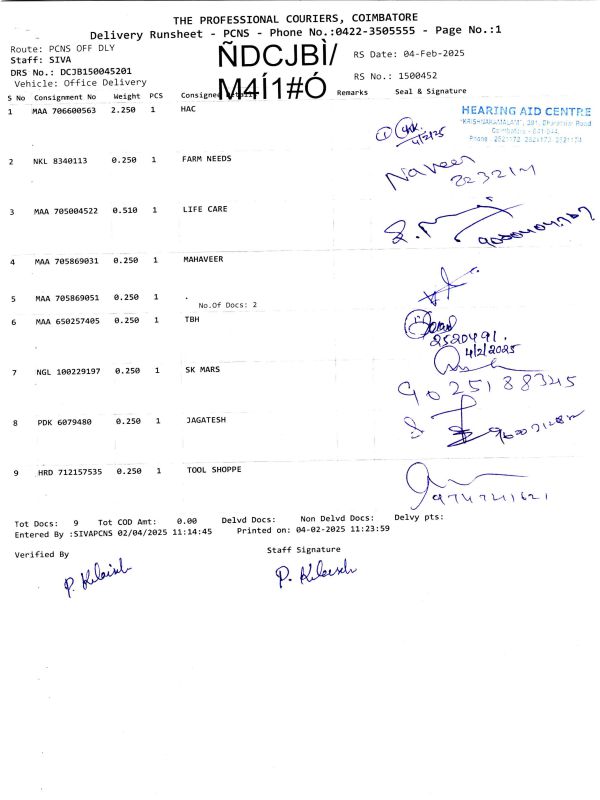 THE PROFESSIONAL COURIERS, COIMBATORE
Delivery Runsheet - PCNS - Phone No.:0422-3505555 - Page No.:1
Route: PCNS OFF DLY
ÑDCJBÌ/
RS Date: 04-Feb-2025
Staff: SIVA
DRS No.: DCJB150045201
M4Í1#Ó
RS No.: 1500452
Vehicle: Office Delivery
S No Consignment No Weight PCS Consignee Details Remarks Seal & Signature
1 MAA 706600563 2.250 1 HAC
HEARING AID CENTRE
4/2/25
2 NKL 8340113 0.250 1 FARM NEEDS
Naveen
3 MAA 705004522 0.510 1 LIFE CARE
4 MAA 705869031 0.250 1 MAHAVEER
5 MAA 705869051 0.250 1 .
No.Of Docs: 2
6 MAA 650257405 0.250 1 TBH
2520491.
4/2/2025
7 NGL 100229197 0.250 1 SK MARS
9025188345
8 PDK 6079480 0.250 1 JAGATESH
9 HRD 712157535 0.250 1 TOOL SHOPPE
Tot Docs: 9 Tot COD Amt: 0.00 Delvd Docs: Non Delvd Docs: Delvy pts:
Entered By :SIVAPCNS 02/04/2025 11:14:45 Printed on: 04-02-2025 11:23:59
Verified By
Staff Signature